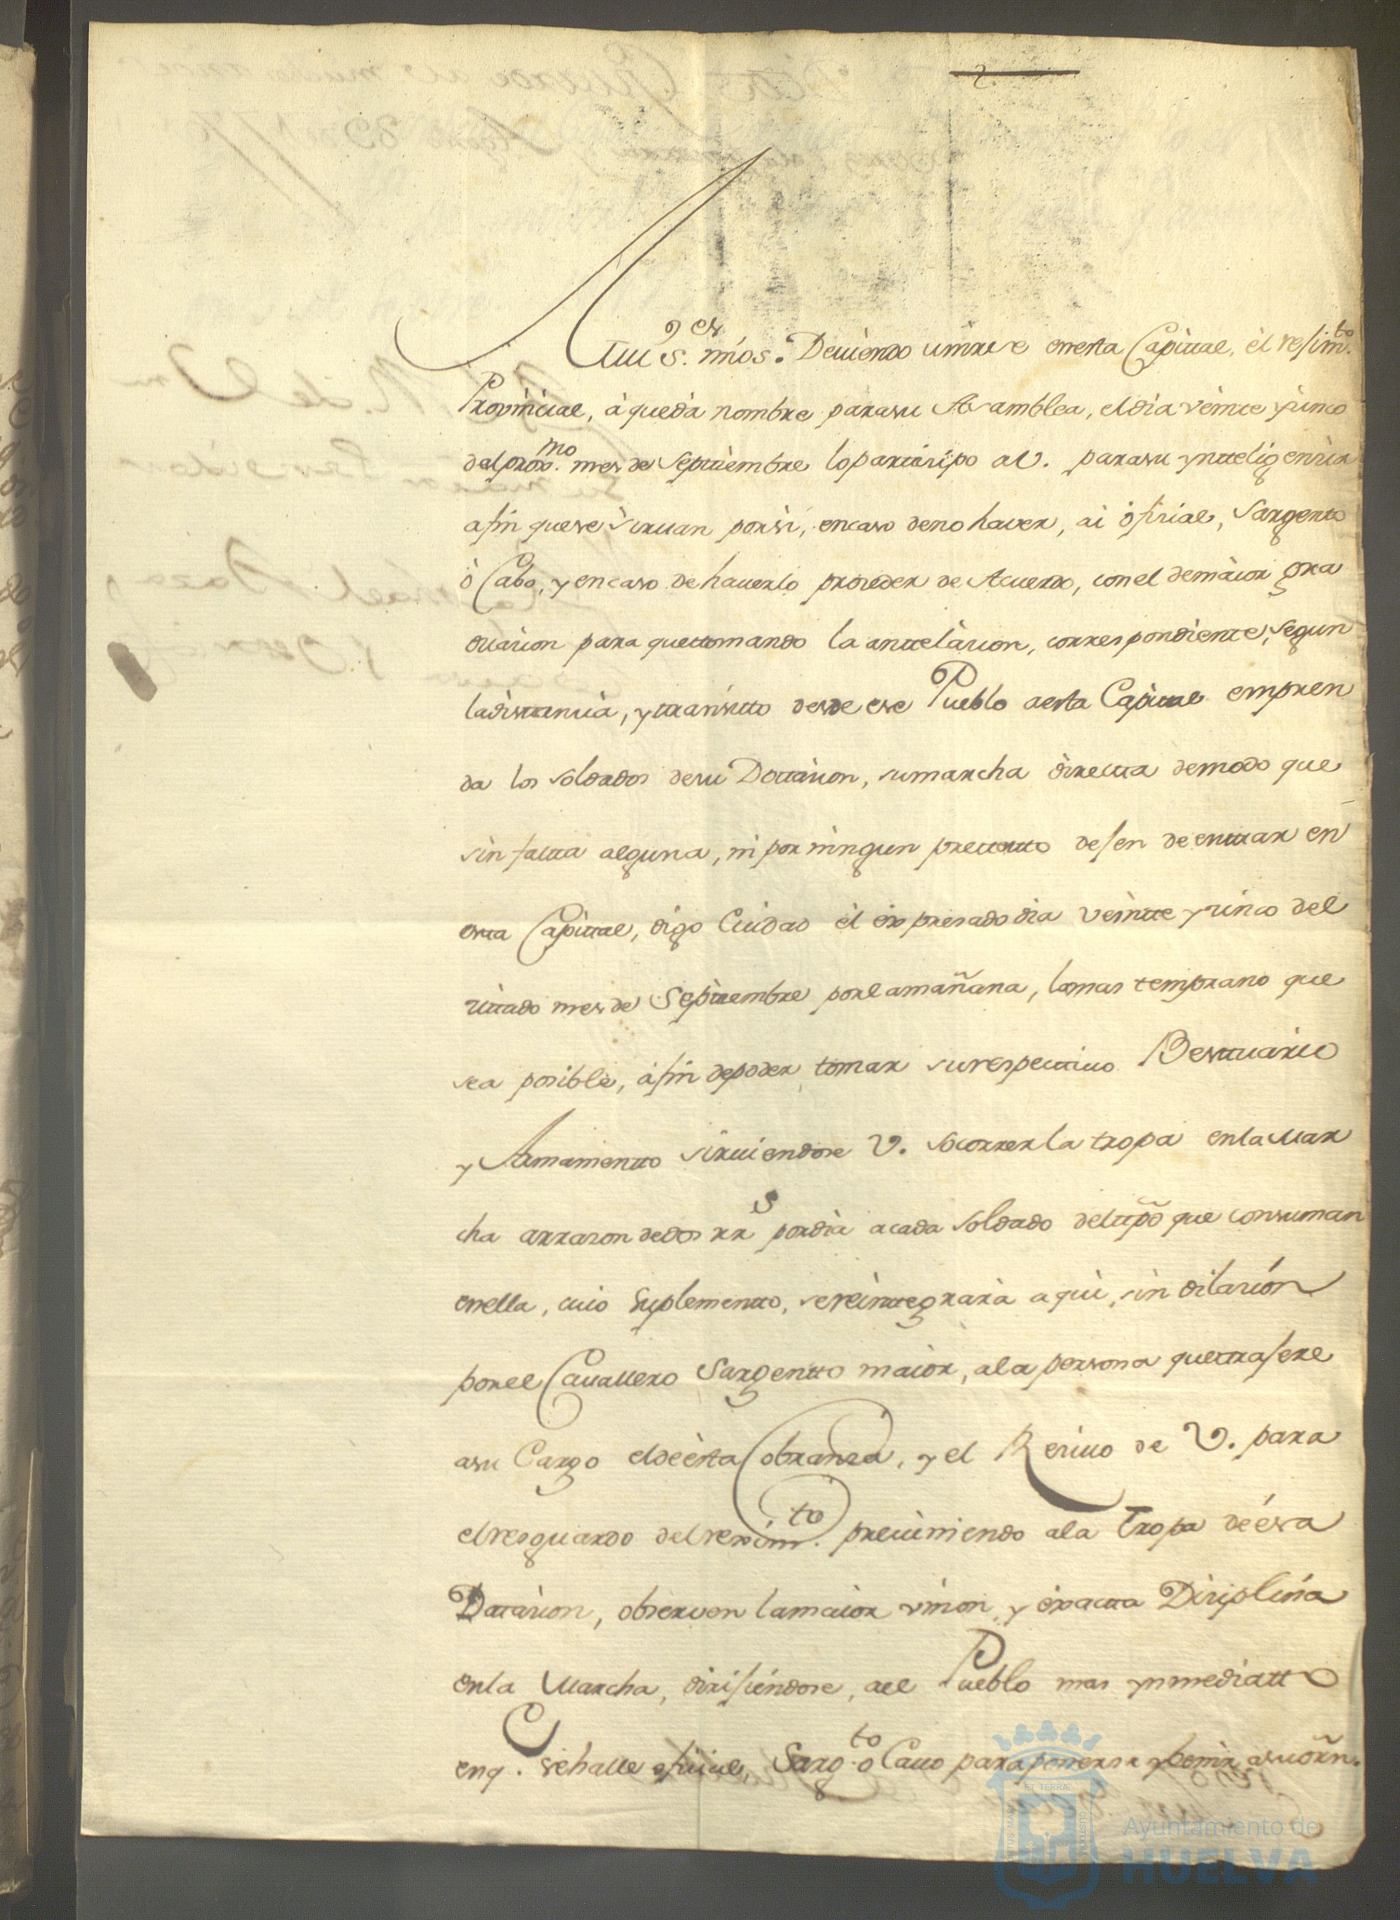 2.
Mui S.res mios. Deviendo unirse en esta Capital, el rejim.to
Provincial, à que dà nombre para su Asamblea, el dia veinte y sinco
del prox.mo mes de Septtiembre lo partisipo a V. para su ynteligensia
a fin que se sirvan por si, en caso de no haver, ai ofisial, Sargento
ò Cabo, y en caso de haverlo proseder de Acuerdo, con el de maior gra
duasion para que ttomando la anttelasion, correspondiente, segun
la disttansia, y transitto desde ese Pueblo a esta Capittal empren
da los soldados de su Dottasion, su marcha directta de modo que
sin faltta alguna, ni por ningun prettextto dejen de enttrar en
esta Capittal, digo Ciudad el expresado dia veintte y sinco del
sittado mes de Septtiembre por la mañana, lo mas temprano que
sea posible, à fin de poder tomar su respecttivo Besttuario
y Armamentto sirviendose V. socorrer la tropa en la Mar
cha arrason de dos rr.s por dia a cada Soldado del ttpõ que consuman
en ella, cuio suplementto, se reinttegrarà aqui, sin dilasion
por el Cavallero Sargentto maior, a la persona que ttrajere
a su Cargo el de esta Cobransa, y el Resivo de V. para
el resguardo del rexim.to previniendo a la Tropa de esa
Dottasion, observen la maior union, y exactta Disiplina
en la Marcha, dirijiendose, a el Pueblo mas ynmediatto
en q.e se halle ofisial, Sarg.to o Cavo para ponerse y benir a su orñ.
Ayuntamiento de
HUELVA